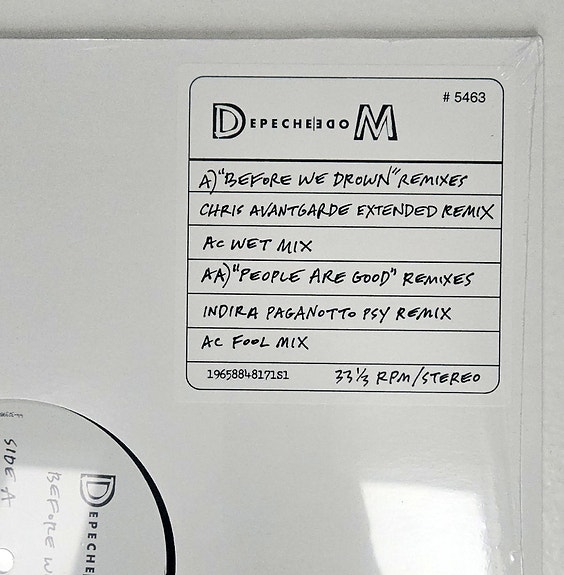 # 5463
DEPECHE MODE
A) "BEFORE WE DROWN" REMIXES
CHRIS AVANTGARDE EXTENDED REMIX
AC WET MIX
AA) "PEOPLE ARE GOOD" REMIXES
INDIRA PAGANOTTO PSY REMIX
AC FOOL MIX
19658848171S1 33 1/3 RPM/STEREO
DEPECHE
BEFORE W
SIDE A